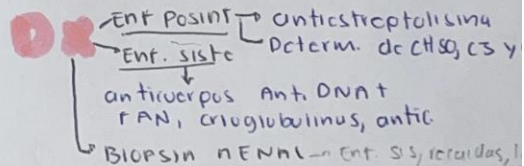 DX Enf posinf → anticstreptolisina
Determ. de CH50, C3 y
Enf. siste
anticuerpos Anti DNA+
FAN, crioglobulinus, antic.
Biopsia RENAL → Enf. sis, recaidas,